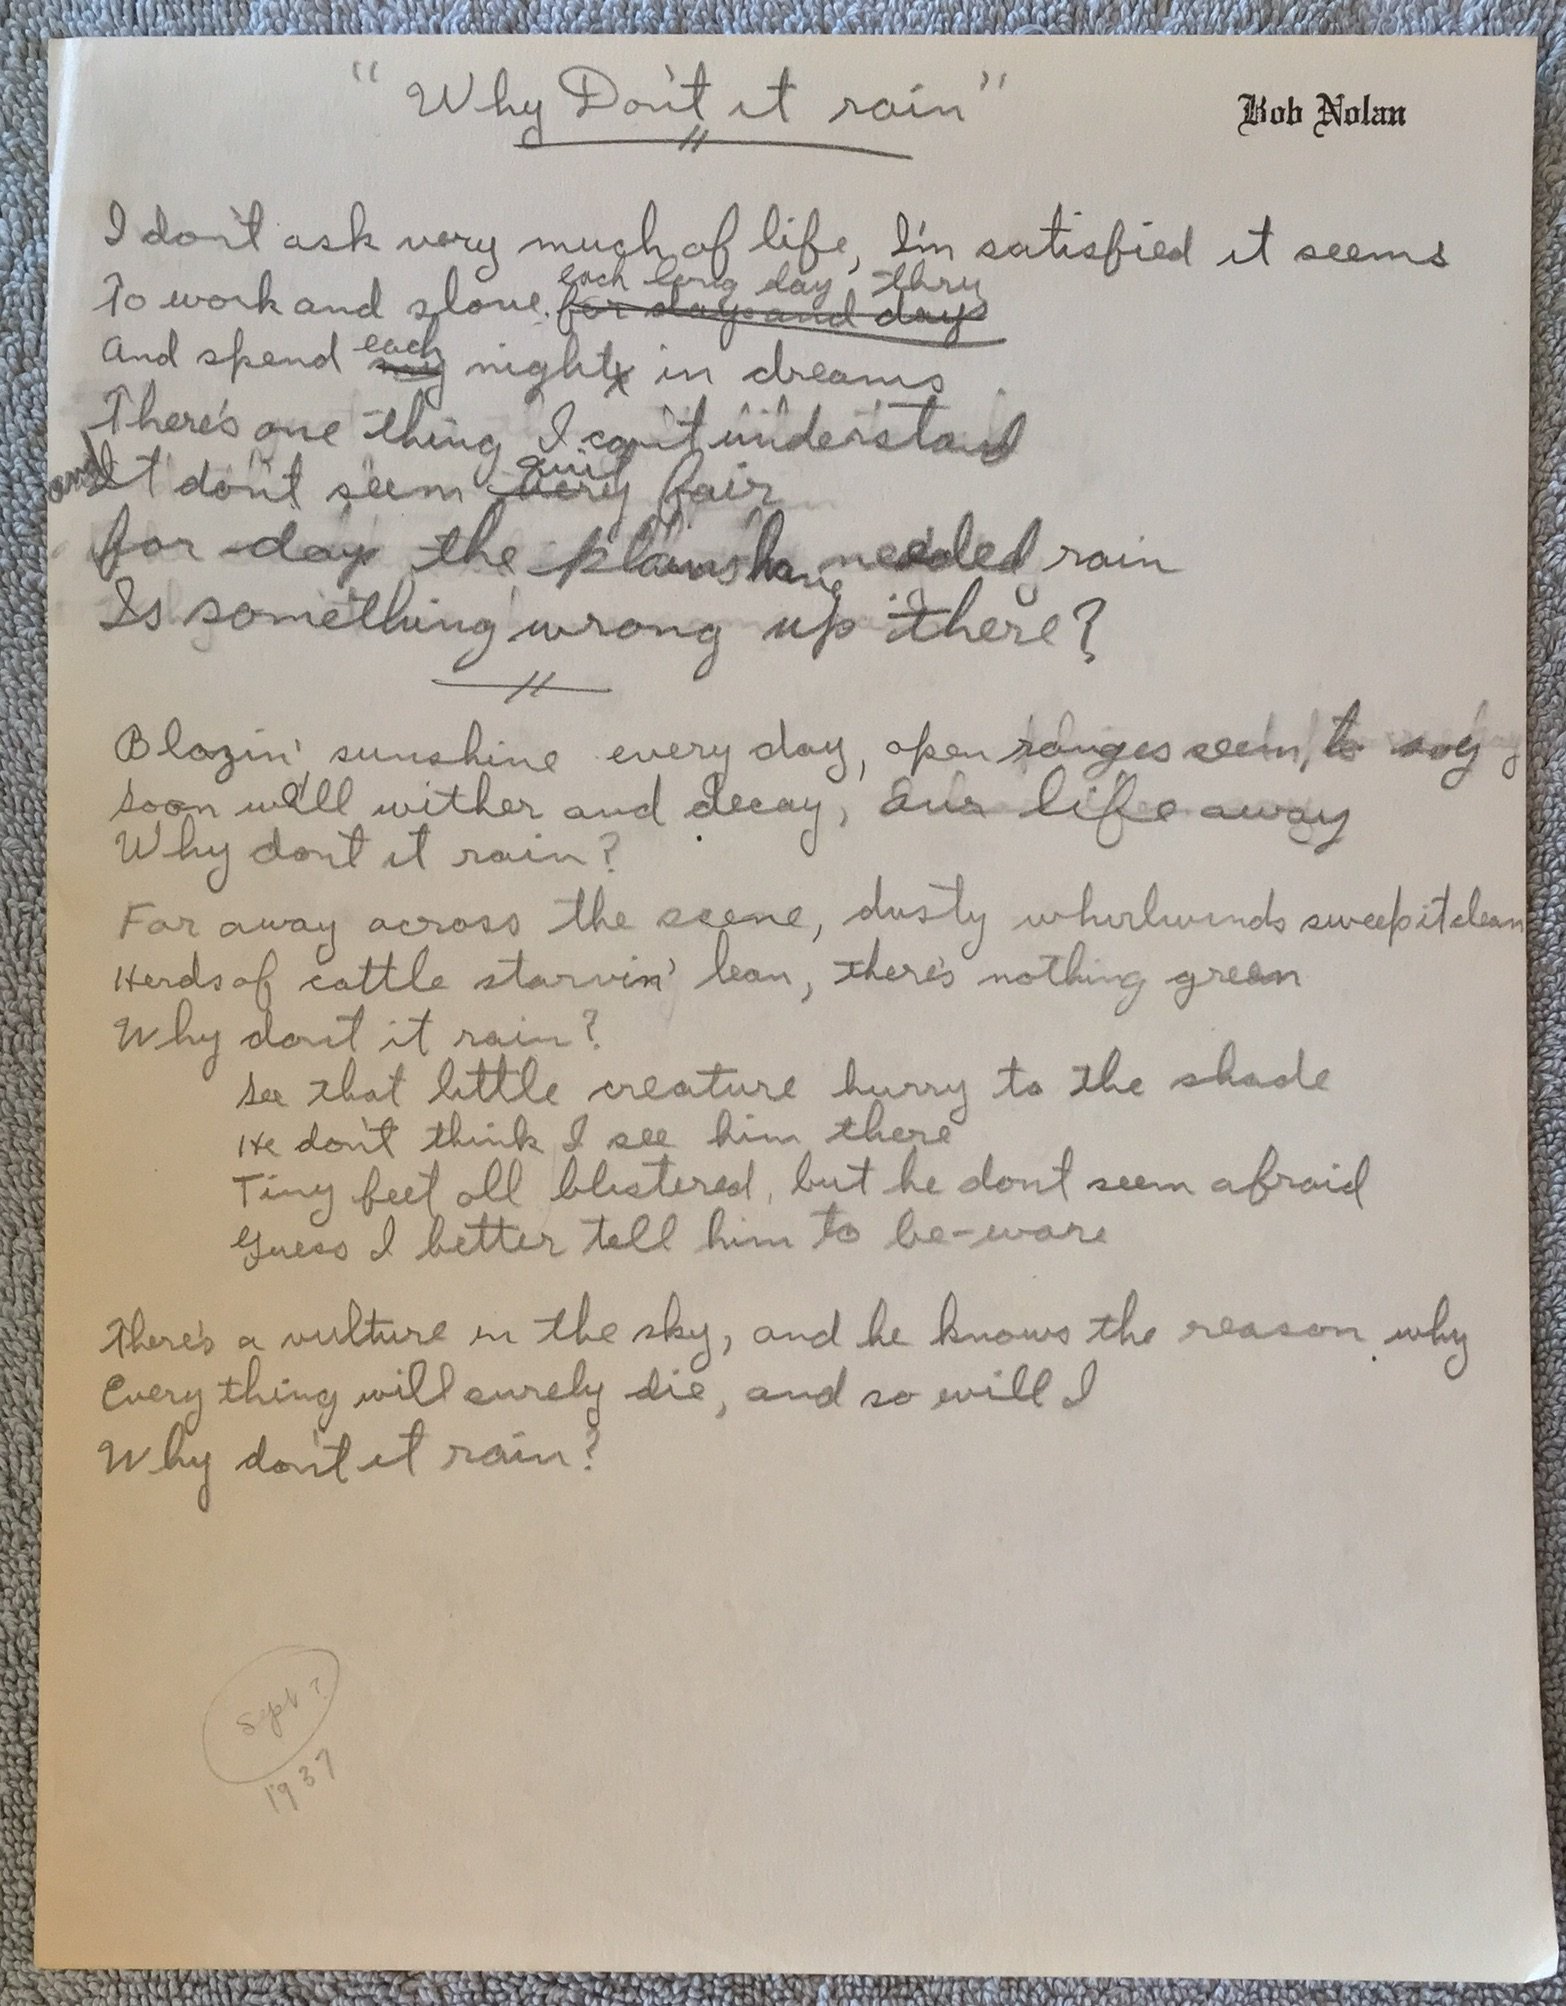 "Why Don't it rain"
Bob Nolan
I don't ask very much of life, I'm satisfied it seems
each long day thru
To work and slave for days and days
each
And spend my nights in dreams
There's one thing I can't understand
and It don't seem very fair
for days the plains have needed rain
Is something wrong up there?
Blazin' sunshine every day, open ranges seem to say
Soon we'll wither and decay, our life away
Why dont it rain?
Far away across the scene, dusty whirlwinds sweep it clean
Herds of cattle starvin' lean, there's nothing green
Why dont it rain?
See that little creature hurry to the shade
He don't think I see him there
Tiny feet all blistered, but he dont seem afraid
Guess I better tell him to be-ware
There's a vulture in the sky, and he knows the reason why
Every thing will surely die, and so will I
Why don't it rain?
Sept ?
1937